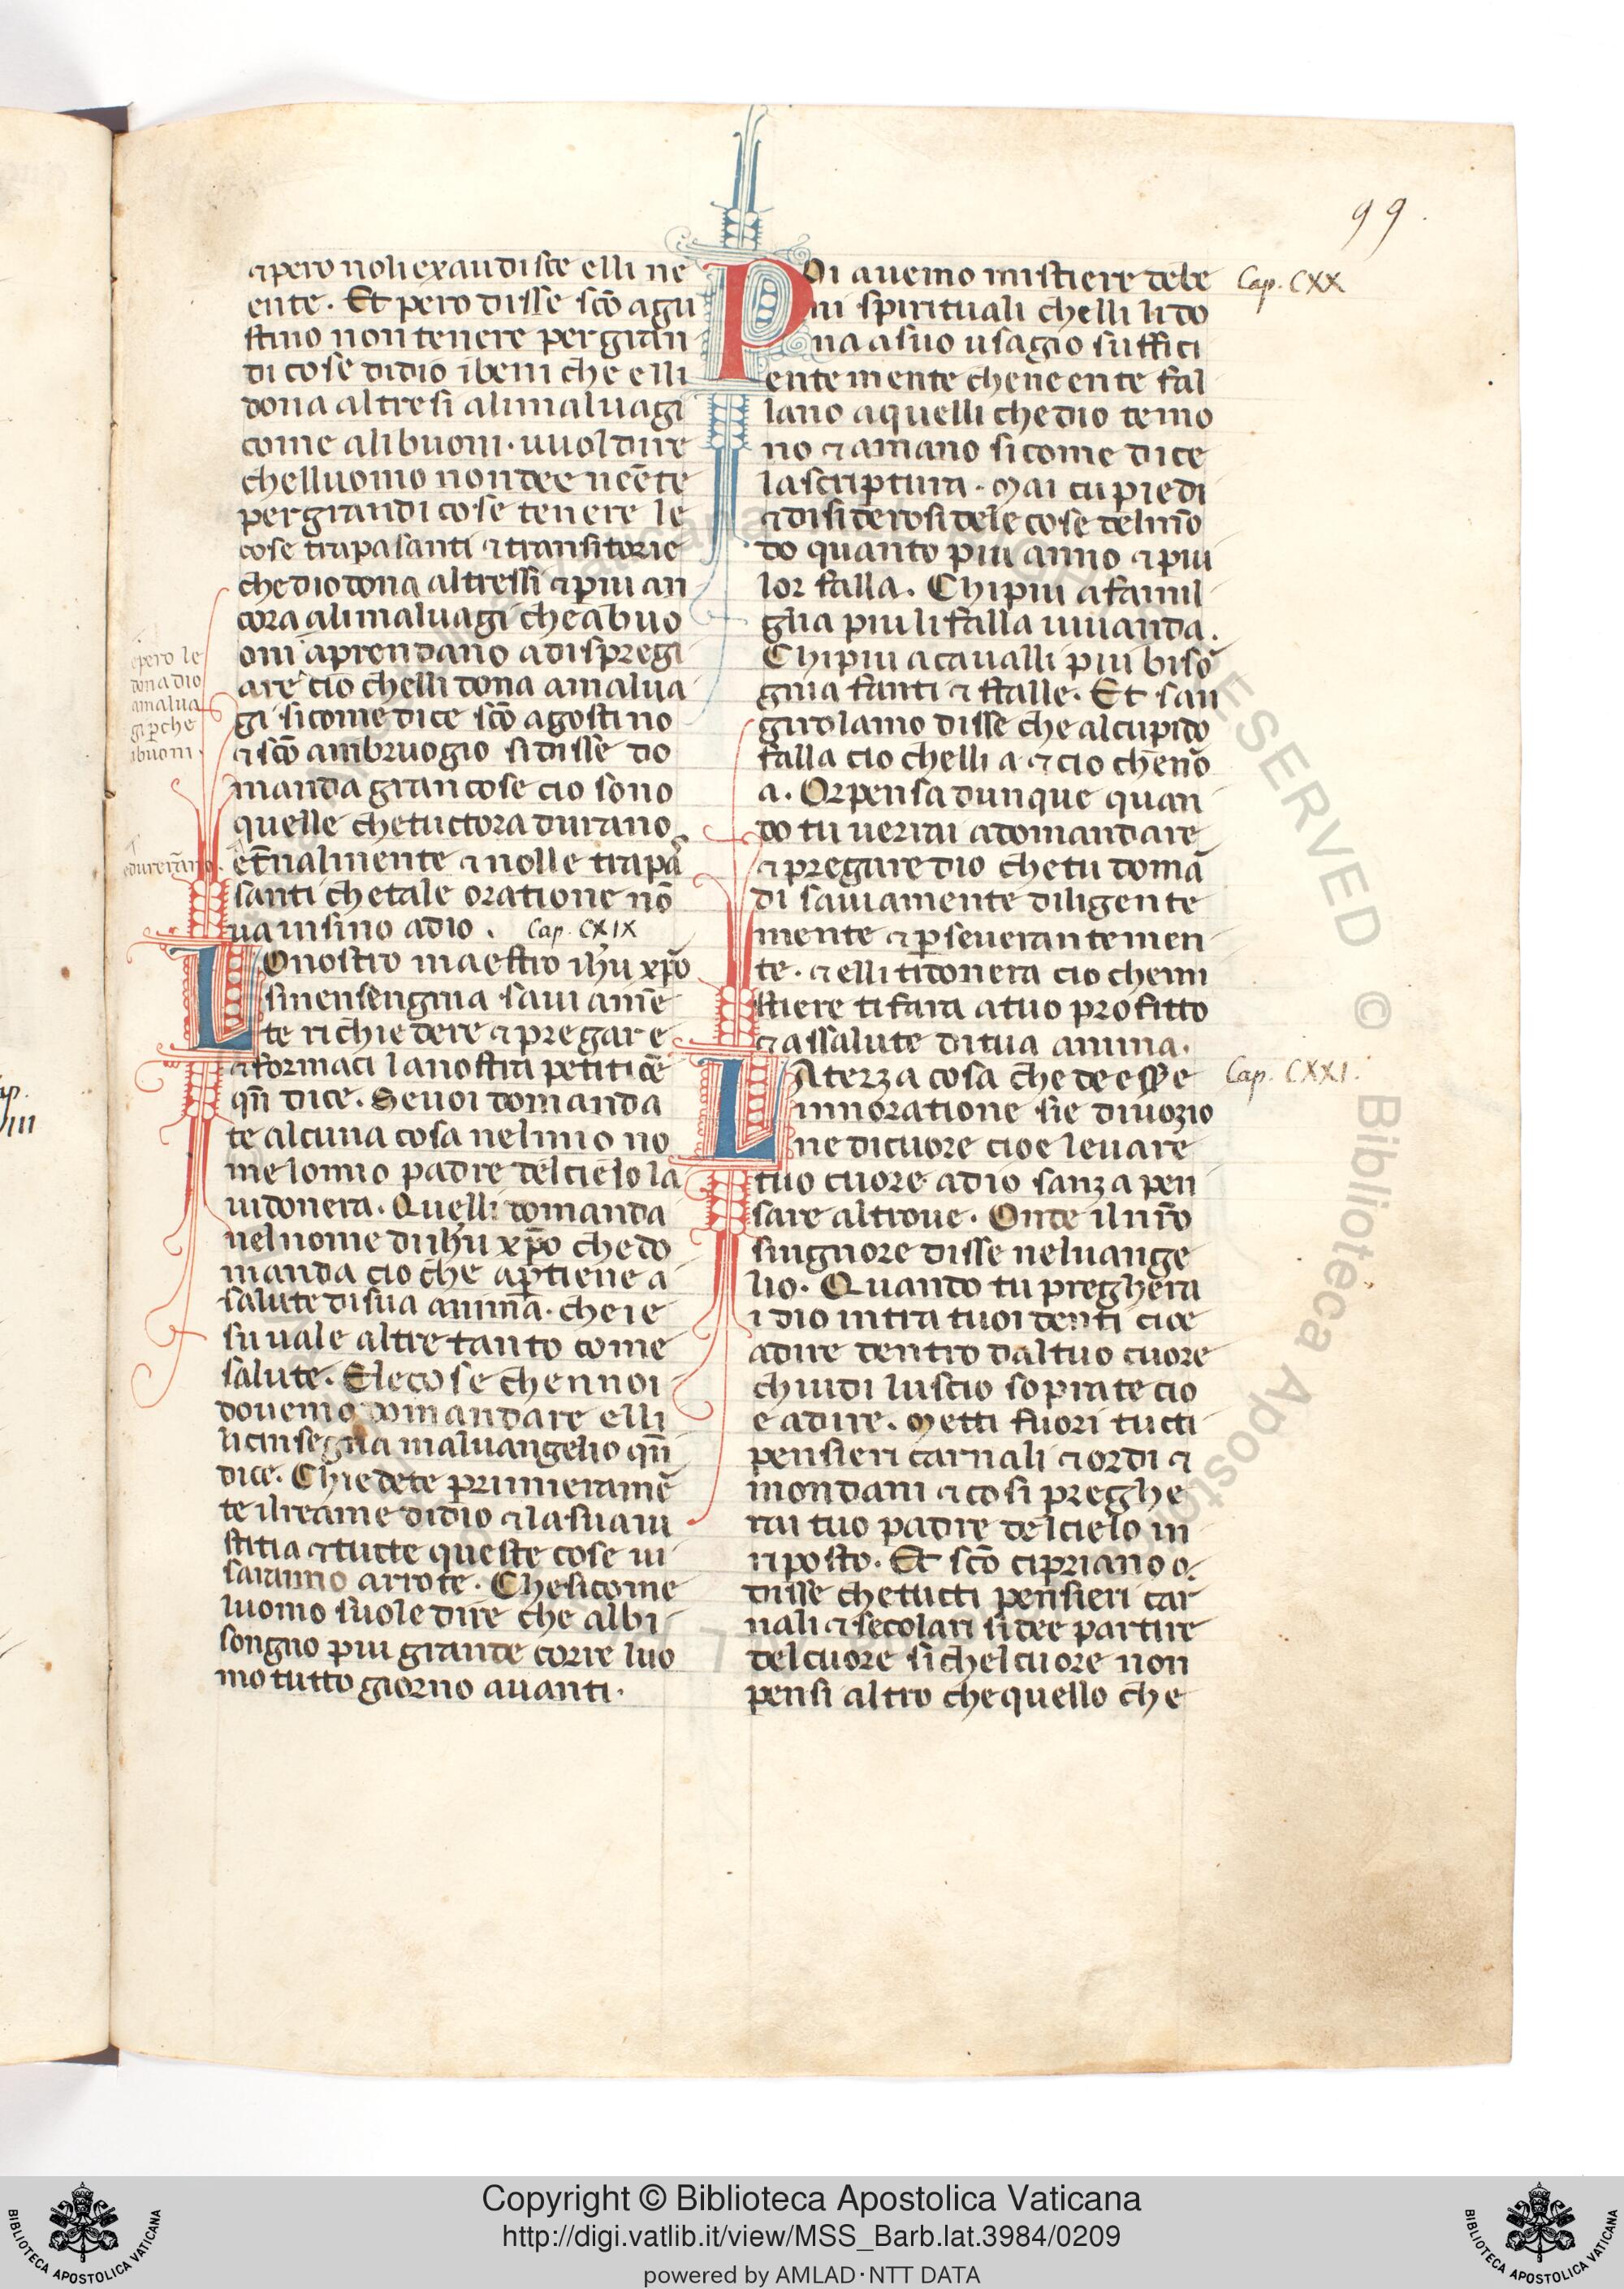 99.
⁊ pero noli exaudisce elli ne
ente. Et pero disse sc̄o agu
stino non tenere per gran
di cose didio i beni che elli
dona altresi ali maluagi
come ali buoni. uuol dire
chelluomo non dee nēete
per grandi cose tenere le
cose trapasanti ⁊ transitorie
che dio dona altressi ⁊ piu an
cora ali maluagi che a buo
oni aprendano a dispregi
are cio chelli dona a malua
epero le
dona dio
amalua
gi p̄che
ibuoni.
gi si come dice sc̄o agostino
⁊ sc̄o ambruogio si disse do
manda gran cose cio sono
quelle che tuctora durano
edurerāno.
et̄nalmente ⁊ nolle trapa
santi che tale oratione nō
ua insino adio. Cap. CXIX
Lo nostro maestro ihū xp̄o
sinensengna sauiamē
te richiedere ⁊ pregare
⁊ formaci la nostra petitiōe
qn̄ dice. Se uoi domanda
te alcuna cosa nel mio no
me lo mio padre del cielo la
ui donera. Quelli domanda
nel nome di ihū xp̄o che do
manda cio che aptiene a
salute di sua anima. che ie
su uale altretanto come
salute. E le cose chennoi
douemo domandare elli
li cinsegna naluangelio qn̄
dice. Chiedete primieramē
te il reame didio ⁊ la sua iu
stitia ⁊ tucte queste cose ui
saranno arrote. Che si come
luomo suole dire che al bi
songno piu grande corre luo
mo tutto giorno auanti.
Poi auemo mistiere de be Cap. CXX
ni spirituali chelli li do
na a suo usagio suffici
ente mente che neente fal
lano a quelli che dio temo
no ⁊ amano si come dice
la scriptura. Mai cupiedi
⁊ disiderosi dele cose del mō
do quanto piu anno ⁊ piu
lor falla. Chi piu a famil
glia piu li falla uiuanda.
Chi piu a caualli piu biso
gna fanti ⁊ stalle. Et san
girolamo disse che al cupido
falla cio chelli a. ⁊ cio che nō
a. Or pensa dunque quan
do tu uerrai a domandare
⁊ pregare dio che tu domā
di sauiamente diligente
mente ⁊ p̱seuerantemen
te. ⁊ elli ti donera cio che mi
stiere ti fara a tuo profitto
⁊ assalute di tua anima.
La terza cosa che dee esse̅ Cap. CXXI.
innoratione sie diuozio
ne di cuore cioe leuare
tuo cuore adio sanza pen
sare altroue. Onde il nr̄o
singnore disse neluange
lio. Quando tu preghera
i dio intra tuoi denti cioe
a dire dentro dal tuo cuore
chiudi luscio sopra te cio
e a dire. metti fuori tucti
pensieri carnali ⁊ ordi ⁊
mondani ⁊ cosi preghe
rai tuo padre del cielo in
riposto. Et sc̄o cipriano o.
disse che tucti pensieri car
nali ⁊ secolari si dee partire
del cuore si chel cuore non
pensi altro che quello che
Copyright © Biblioteca Apostolica Vaticana
http://digi.vatlib.it/view/MSS_Barb.lat.3984/0209
powered by AMLAD·NTT DATA
BIBLIOTECA APOSTOLICA VATICANA
BIBLIOTECA APOSTOLICA VATICANA